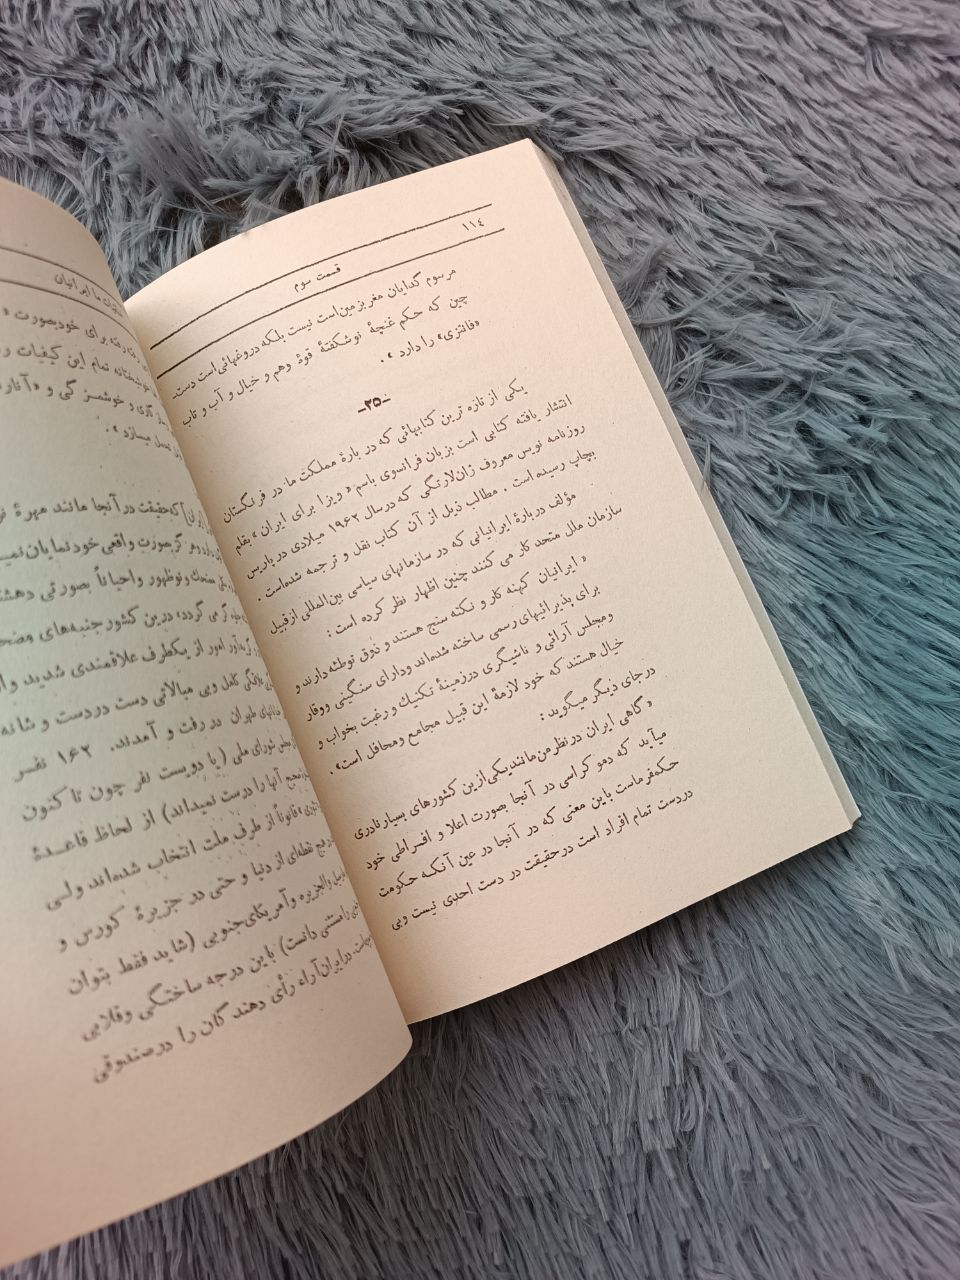 ١١٤
قسمت سوم
مرسوم گدایان مغربزمین است نیست بلکه دروغهائی است دست‌ـ
چین که حکم غنچهٔ نوشکفتهٔ قوهٔ وهم و خیال و آب و تاب
«فانتزی» را دارد ».
ـ۲۵ـ
یکی از تازه ترین کتابهائی که در بارهٔ مملکت ما در فرنگستان
انتشار یافته کتابی است بزبان فرانسوی باسم « ویزا برای ایران » بقلم
روزنامه نویس معروف ژان‌لارتگی که در سال ۱۹۶۲ میلادی در پاریس
بچاپ رسیده است . مطالب ذیل از آن کتاب نقل و ترجمه شده‌است .
مؤلف دربارهٔ ایرانیانی که در سازمانهای سیاسی بین‌المللی از قبیل
سازمان ملل متحد کار می کنند چنین اظهار نظر کرده است :
« ایرانیان کهنه کار و نکته سنج هستند و ذوق توطئه دارند و
برای پذیرائیهای رسمی ساخته شده‌اند و دارای سنگینی و وقار
و مجلس آرائی و ناشیگری در زمینهٔ تکنیک و رغبت بخواب و
خیال هستند که خود لازمهٔ این قبیل مجامع و محافل است» .
در جای دیگر میگوید :
« گاهی ایران در نظر من مانند یکی از این کشورهای بسیار نادری
میآید که دمو کراسی در آنجا بصورت اعلا و افراطی خود
حکمفرماست باین معنی که در آنجا در عین آنکه حکومت
در دست تمام افراد است در حقیقت در دست احدی نیست و بی
خلقیات ما ایرانیان
رفته رفته برای خود بصورت «
تمام این کیفیات
کاری و خوشمزگی و «آثار
میسازد» .
که حقیقت در آنجا مانند مهرهٔ
بصورت واقعی خود نمایان
مضحک و نوظهور و احیاناً بصورتی
می گردد، در این کشور جنبه‌های
آور امور از یکطرف علاقمندی شدید و
کامل و بی مبالاتی دست در دست و شانه
طهران در رفت و آمدند. ۱۶۲ نفر
شورای ملی (یا دویست نفر چون تا کنون
آنها را درست نمیداند) از لحاظ قاعدهٔ
قانوناً از طرف ملت انتخاب شده‌اند ولی
نقطه‌ای از دنیا و حتی در جزیرهٔ کورس و
الجزیره و آمریکای‌جنوبی (شاید فقط بتوان
را مستثنی دانست) باین درجه ساختگی و قلابی
در ایران آراء رأی دهند گان را در صندوقی